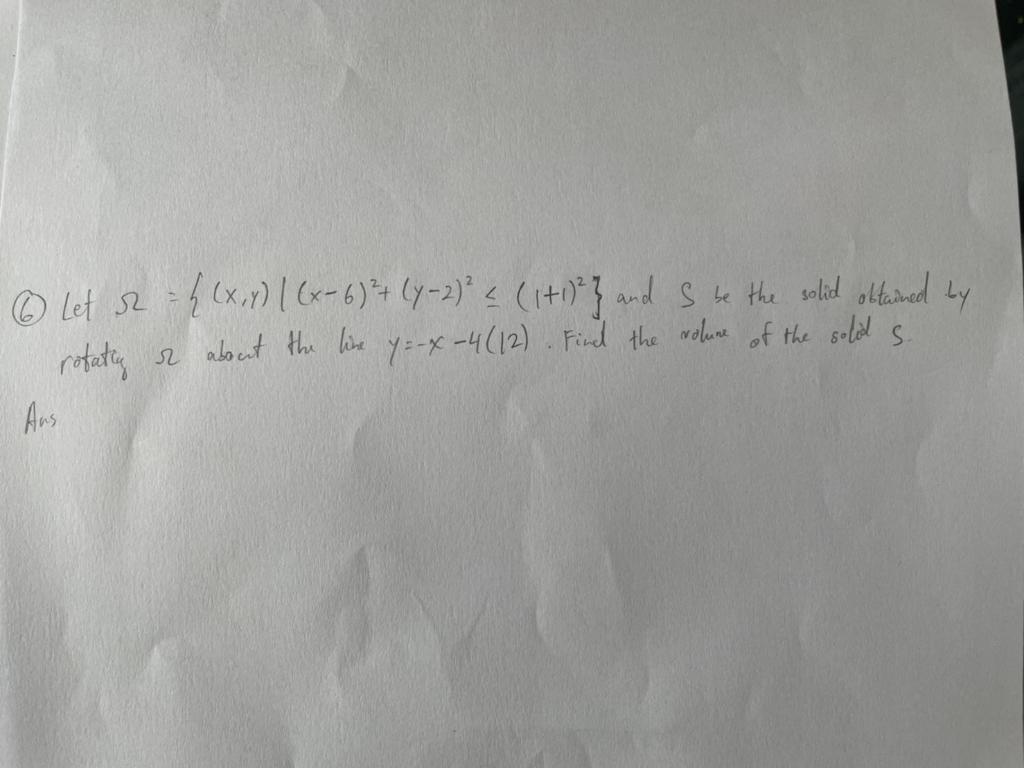 ⑥ Let Ω = { (x,y) | (x-6)²+ (y-2)² ≤ (1+1)² } and S be the solid obtained by
rotatig Ω about the line y=-x-4(12). Find the volume of the solid S.
Ans